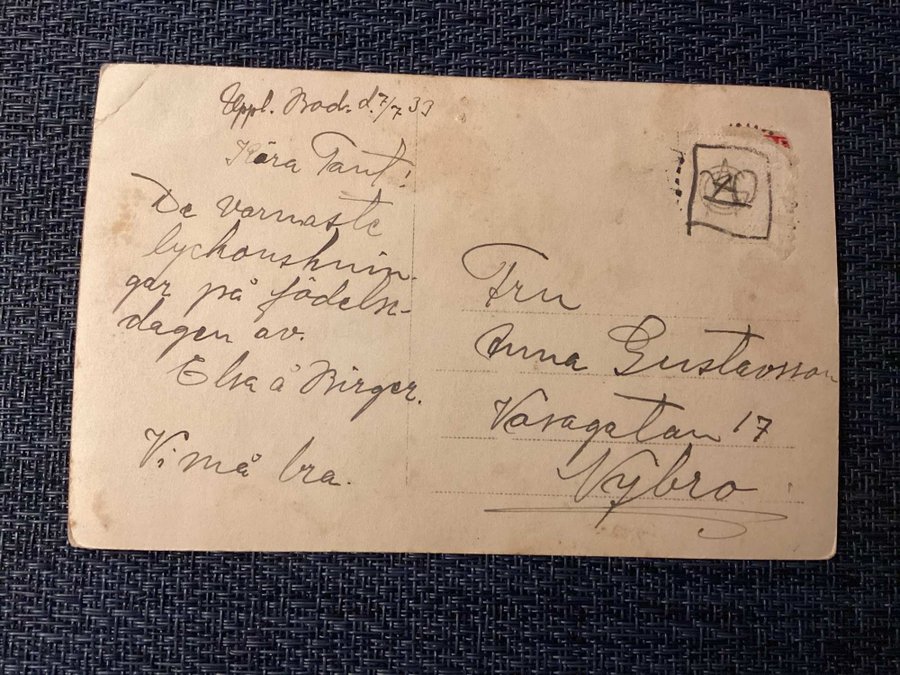 Uppl. Bro d. 7/7 33
Kära Tant!
De varmaste
lyckönsknin-
gar på födelse-
dagen av.
Elsa å Birger.
Vi må bra.
Fru
Anna Gustavsson
Vasagatan 17
Nybro